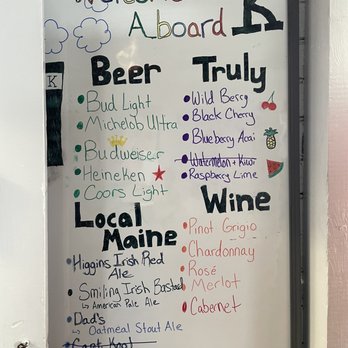 Welcome
Aboard K
K
Beer
Bud Light
Michelob Ultra
Budweiser
Heineken
Coors Light
Truly
Wild Berry
Black Cherry
Blueberry Acai
Watermelon + Kiwi
Raspberry Lime
Local
Maine
Higgins Irish Red
Ale
Smiling Irish Bastard
American Pale Ale
Dad's
Oatmeal Stout Ale
Capt.
Wine
Pinot Grigio
Chardonnay
Rosé
Merlot
Cabernet